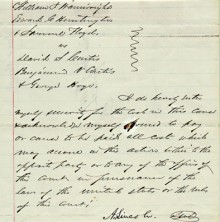 William P Wainwright
Edward C Huntington
& Samuel Boyd
vs
David S Curtis
Benjamin N Curtis
& George Boyd
I do hereby enter
myself security for the cost in this cause
acknowledge myself bound to pay
or cause to be paid all costs which
may accrue in this action either to the
opposite party or to any of the officers of
this Court in pursuance of the
laws of the united states or the rules
of this Court